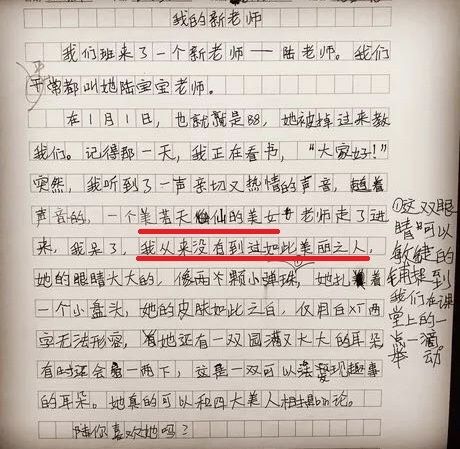 我的新老师
我们班来了一个新老师——陆老师。我们
平常都叫她陆宝宝老师。
在1月1日，也就是88，她被掉过来教
我们。记得那一天，我正在看书，“大家好！”
突然，我听到了一声亲切又热情的声音，趁着
声音的，一个美若天仙的美女老师走了进
来，我呆了，我从来没有到过如此美丽之人，
她的眼睛大大的，像两个颗小弹珠，她扎着
一个小盘头，她的皮肤如此之白，仅用白义两
字无法形容，有她还有一双圆满又大大的耳朵
有时还会一两下，这是一双可以发现趣事
的耳朵。她真的可以和四大美人相提bìn论。
陆你喜欢她吗？
①这双眼
睛可以
敏捷的
捕捉到
我们在课
堂上的一
点一滴
举动